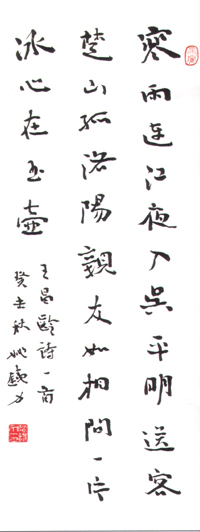 寒雨连江夜入吴平明送客
楚山孤洛陽親友如相問一片
冰心在玉壶
王昌龄詩一首
癸未秋姚